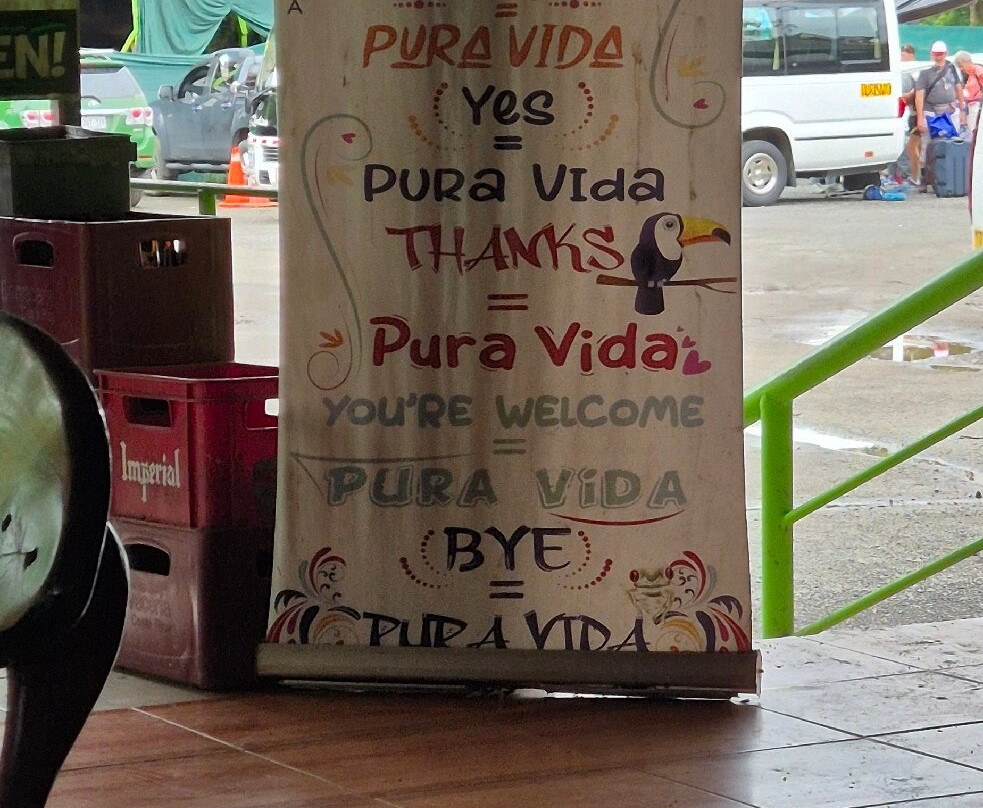 A
EN!
=
PURA VIDA
Yes
=
PURA VIda
THANKS
=
Pura Vida
YOU'RE WELCOME
=
PURA ViDA
BYE
=
PURA VIDA
Imperial
TURISMO